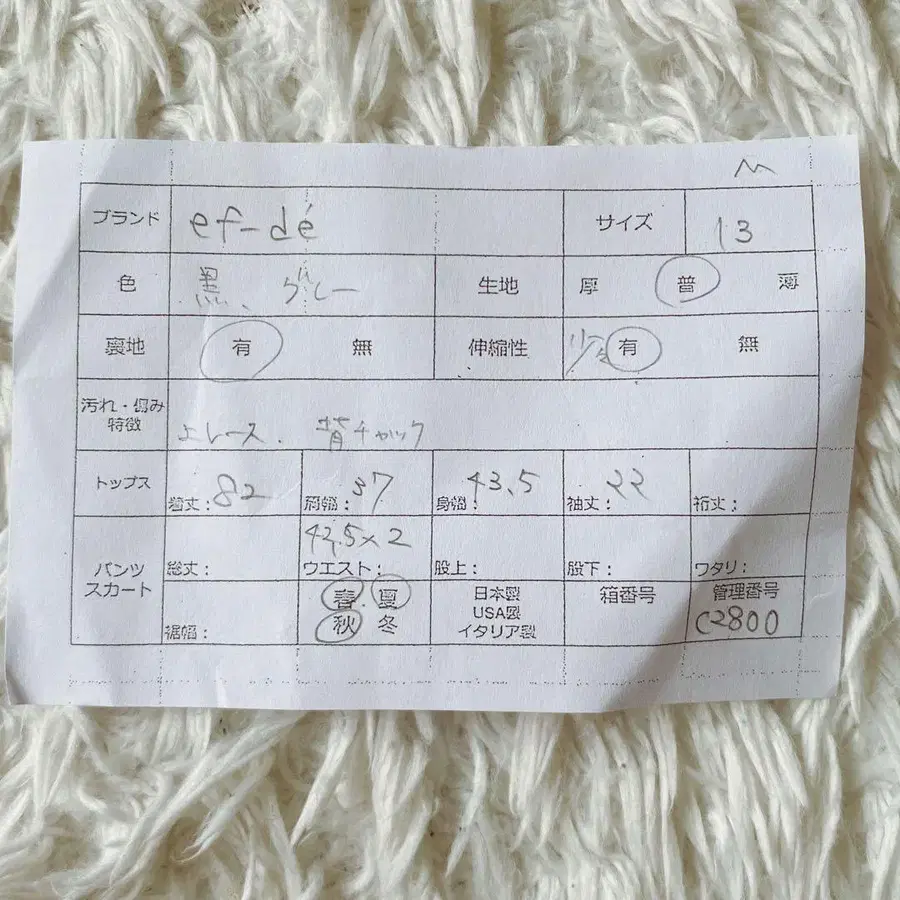 ブランド ef-dé サイズ 13
色 黒、グレー 生地 厚 普 薄
裏地 有 無 伸縮性 少々 有 無
汚れ・傷み
特徴
上レース、背チャック
トップス 着丈：82 肩幅：37 身幅：43.5 袖丈：22 裄丈：
パンツ
スカート
総丈： ウエスト：42.5×2 股上： 股下： ワタリ：
裾幅：
春 夏
秋 冬
日本製
USA製
イタリア製
箱番号
管理番号
C2800